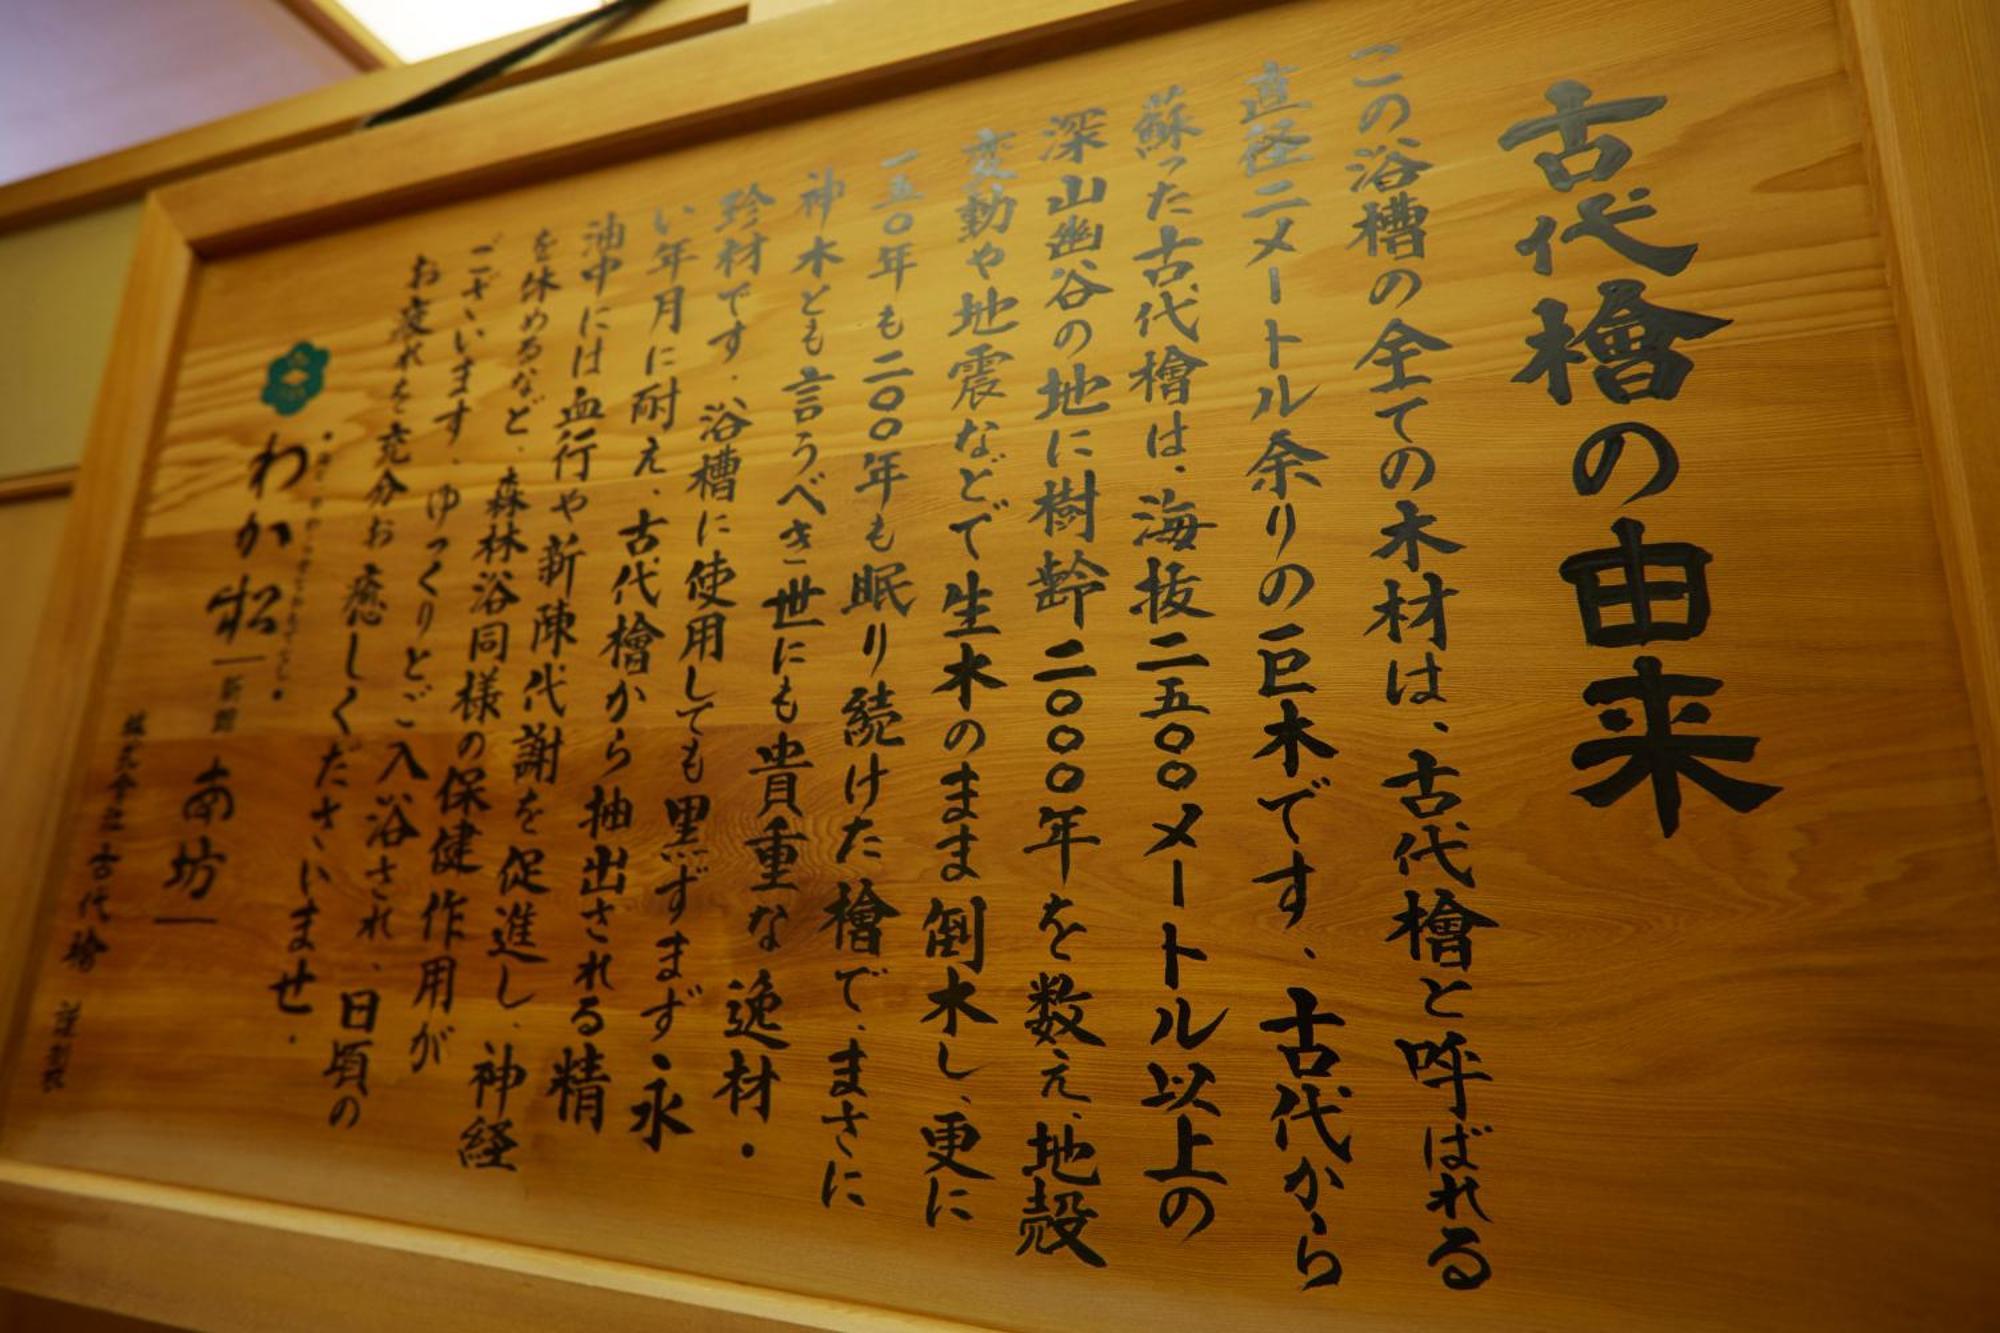 古代檜の由来
この浴槽の全ての木材は、古代檜と呼ばれる
直径二メートル余りの巨木です。古代から
蘇った古代檜は、海抜二五〇〇メートル以上の
深山幽谷の地に樹齢二〇〇〇年を数え、地殻
変動や地震などで生木のまま倒木し、更に
一五〇年も二〇〇年も眠り続けた檜で、まさに
神木とも言うべき世にも貴重な逸材・
珍材です。浴槽に使用しても黒ずまず、永
い年月に耐え、古代檜から抽出される精
油中には血行や新陳代謝を促進し、神経
を休めるなど、森林浴同様の保健作用が
ございます。ゆっくりとご入浴され、日頃の
お疲れを充分お癒しくださいませ。
わか松
新館 南坊
株式会社 古代檜 謹製